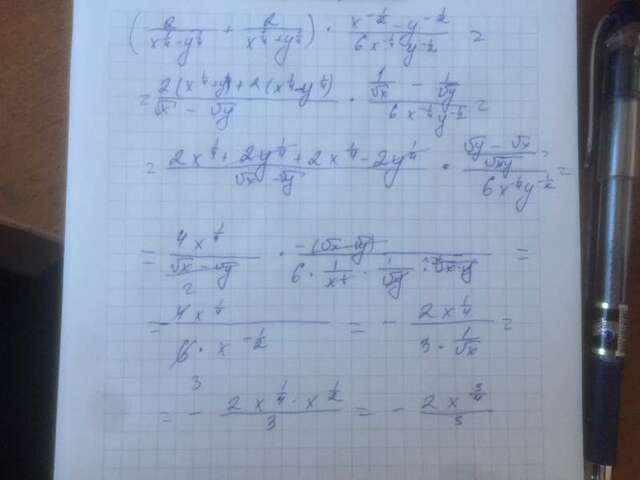 (2/(x^(1/4)-y^(1/4)) + 2/(x^(1/4)+y^(1/4))) · (x^(-1/2)-y^(-1/2))/(6x^(-1/4)y^(-1/2)) =
= (2(x^(1/4)+y^(1/4))+2(x^(1/4)-y^(1/4)))/(√x - √y) · (1/√x - 1/√y)/(6x^(-1/4)y^(-1/2)) =
= (2x^(1/4)+2y^(1/4)+2x^(1/4)-2y^(1/4))/(√x-√y) · ((√y-√x)/√xy)/(6x^(1/4)y^(-1/2)) =
= 4x^(1/4)/(√x-√y) · -(√x-√y)/(6 · 1/x^(1/4) · 1/√y · √x·y) =
2
= 4x^(1/4)/(6·x^(-1/2)) = - 2x^(1/4)/(3·1/√x) =
3
= - (2x^(1/4)·x^(1/2))/3 = - 2x^(3/4)/3